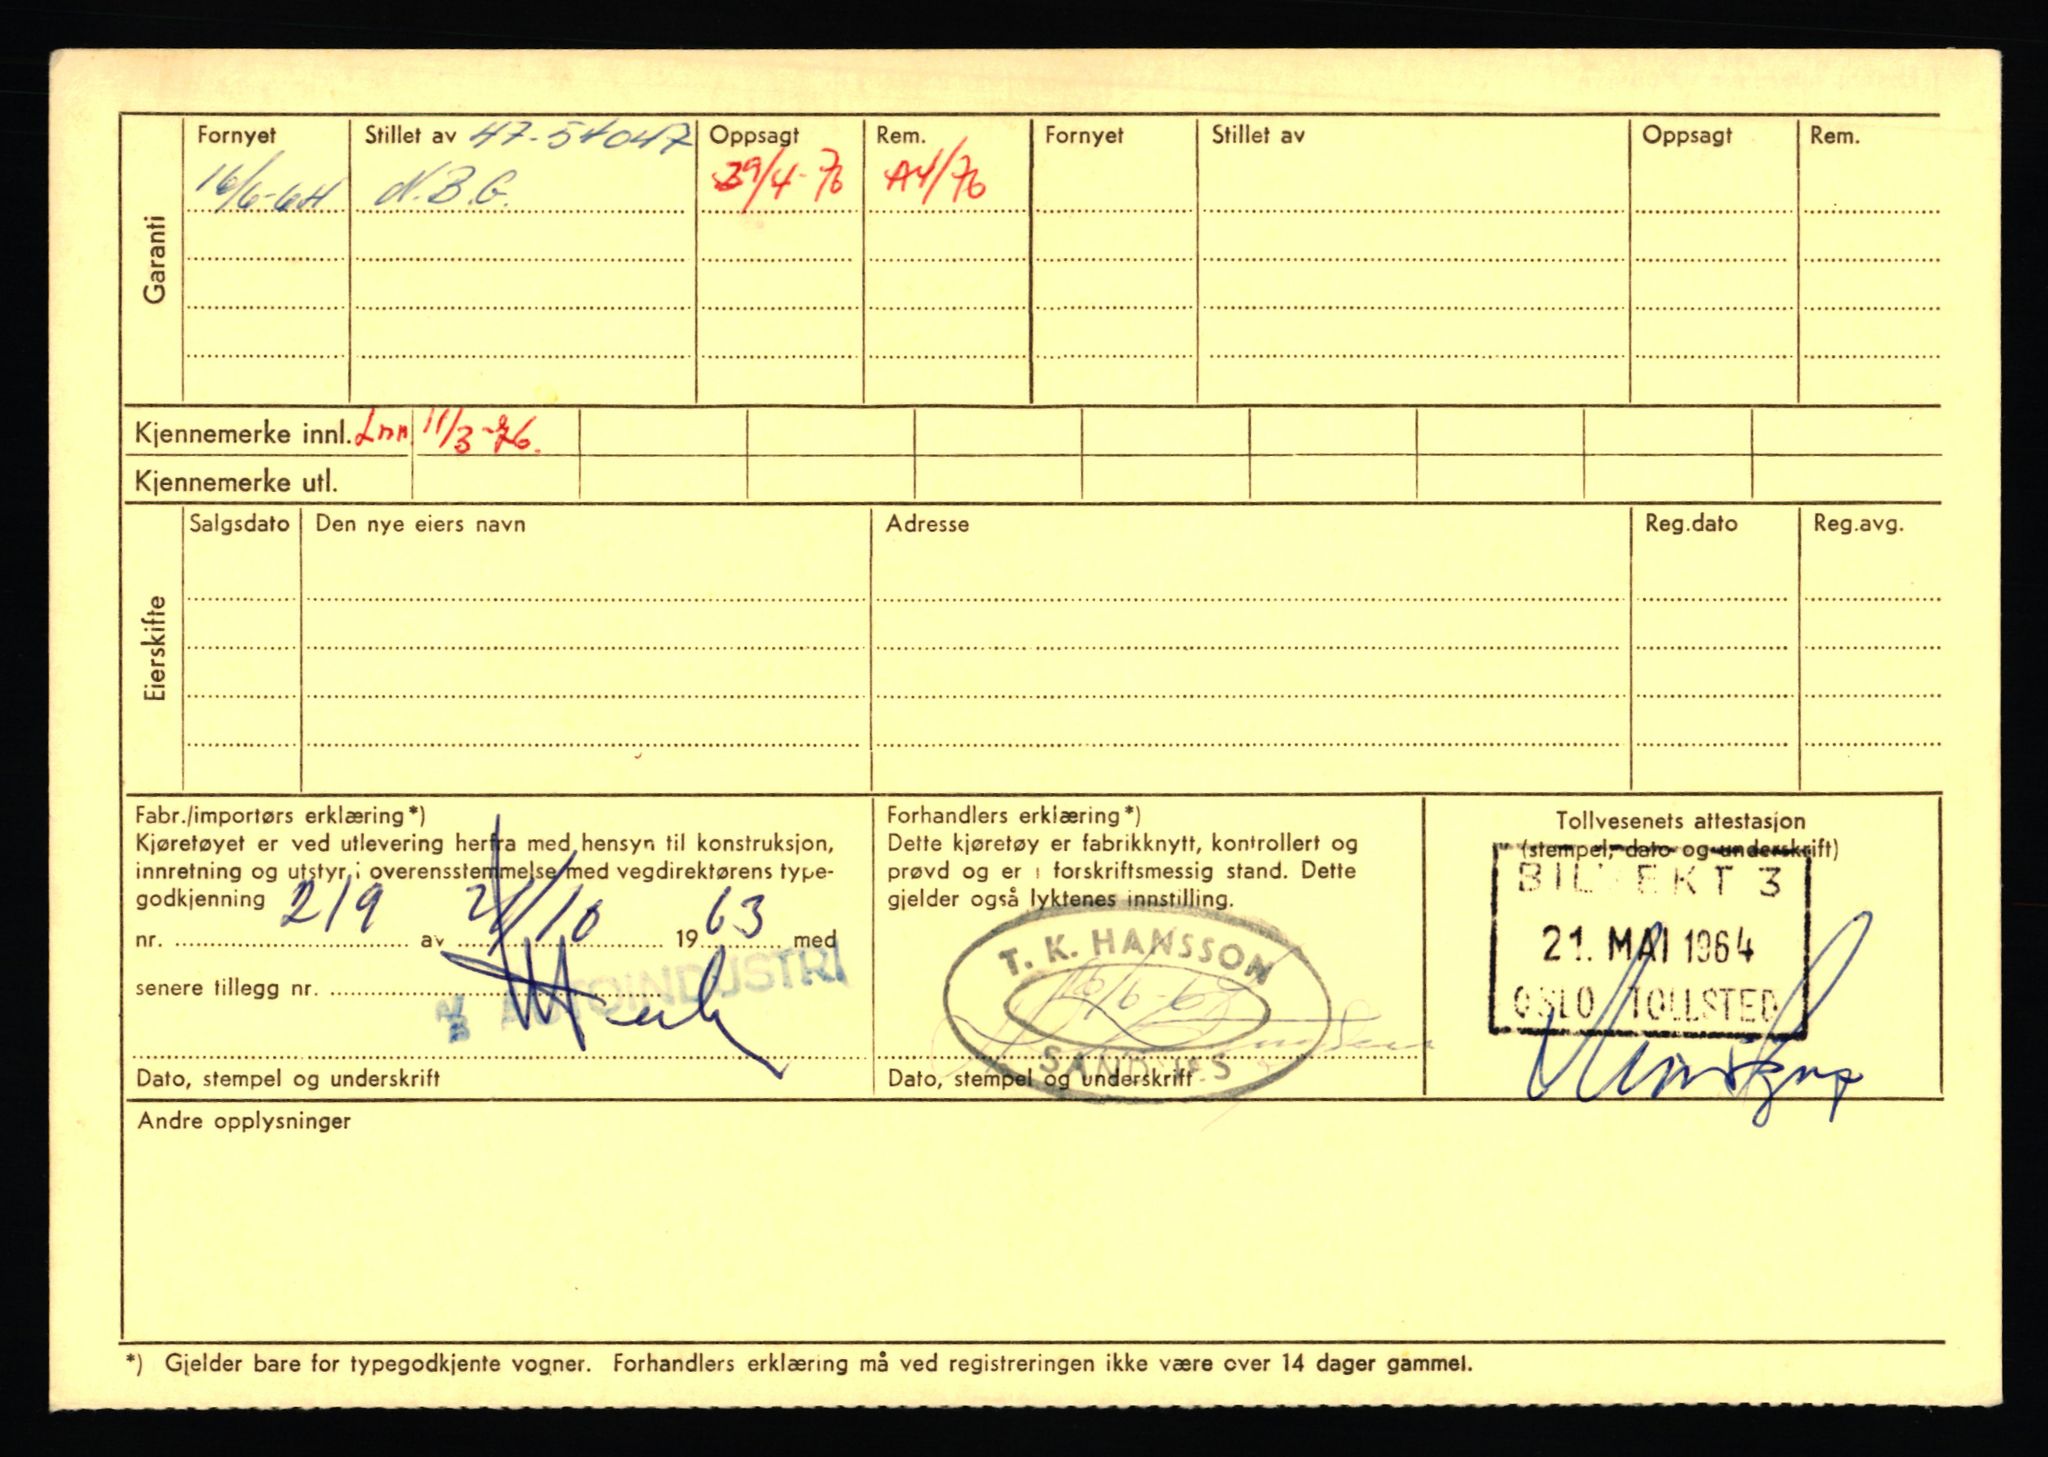 Garanti
Fornyet Stillet av 47-54047 Oppsagt Rem. Fornyet Stillet av Oppsagt Rem.
16/6-64 N.B.G. 29/4-76 A4/76
Kjennemerke innl. 11/3-76.
Kjennemerke utl.
Eierskifte
Salgsdato Den nye eiers navn Adresse Reg.dato Reg.avg.
Fabr./importørs erklæring*)
Kjøretøyet er ved utlevering herfra med hensyn til konstruksjon,
innretning og utstyr i overensstemmelse med vegdirektørens type-
godkjenning
nr. 219 av 21/10 1963 med
senere tillegg nr.
A/S AUTOINDUSTRI
Dato, stempel og underskrift
Forhandlers erklæring*)
Dette kjøretøy er fabrikknytt, kontrollert og
prøvd og er i forskriftsmessig stand. Dette
gjelder også lyktenes innstilling.
T. K. HANSSON
16/6-64
SANDNES
Dato, stempel og underskrift
Tollvesenets attestasjon
(stempel, dato og underskrift)
BILVEKT 3
21. MAI 1964
OSLO TOLLSTED
Andre opplysninger
*) Gjelder bare for typegodkjente vogner. Forhandlers erklæring må ved registreringen ikke være over 14 dager gammel.